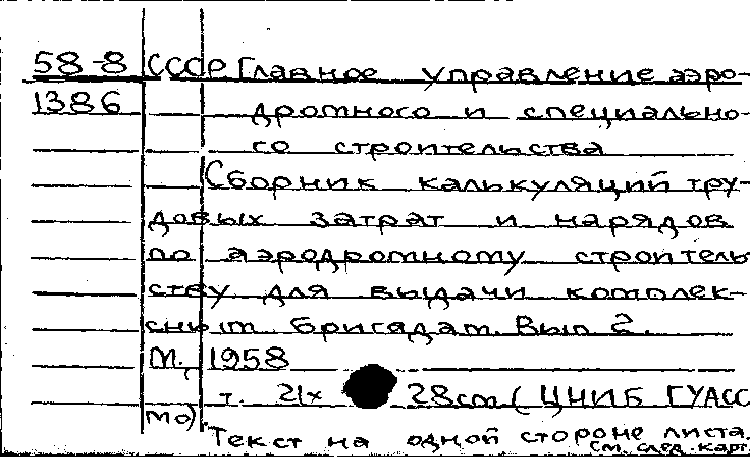 58-8 СССР Главное управление аэро-
1386 дромного и специально-
го строительства
Сборник калькуляций тру-
довых затрат и нарядов
по аэродромному строитель
ству для выдачи комплек-
сным бригадам. Вып 2.
М., 1958
т. 21х 28см (ЦНИБ ГУАСС
МО)
Текст на одной стороне листа.
См. след. карт